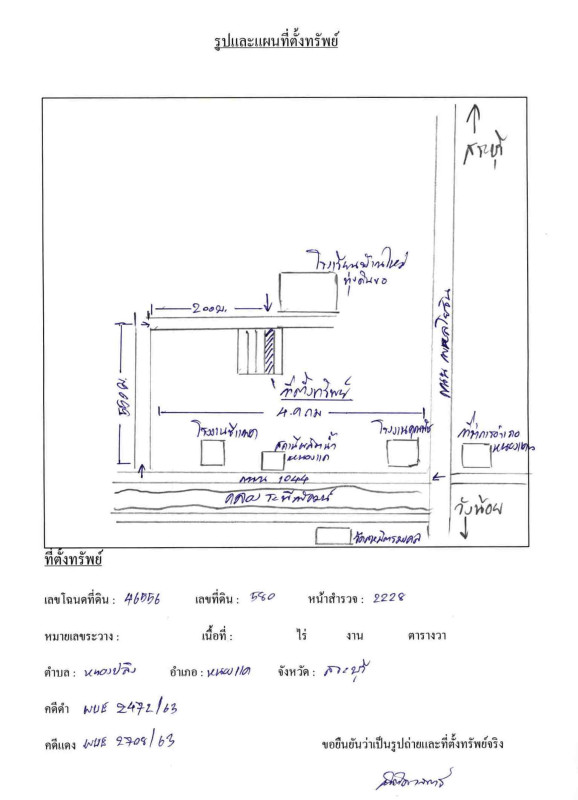 รูปและแผนที่ตั้งทรัพย์
สระบุรี
โรงเรียนบ้านใหม่
ทุ่งดินขอ
200ม.
ถนน พหลโยธิน
ที่ตั้งทรัพย์
4.9 กม
โรงงาน
สถานีผลิตน้ำ
หนองแค
โรงงาน
ที่ว่าการอำเภอ
หนองแค
ถนน 1044
คลอง ระพีพัฒน์
วังน้อย
ที่ตั้งทรัพย์
เลขโฉนดที่ดิน : 46556 เลขที่ดิน : 580 หน้าสำรวจ : 2228
หมายเลขระวาง : เนื้อที่ : ไร่ งาน ตารางวา
ตำบล : หนองปลิง อำเภอ : หนองแค จังหวัด : สระบุรี
คดีดำ ผบE 2472/63
คดีแดง ผบE 2708/63
ขอยืนยันว่าเป็นรูปถ่ายและที่ตั้งทรัพย์จริง